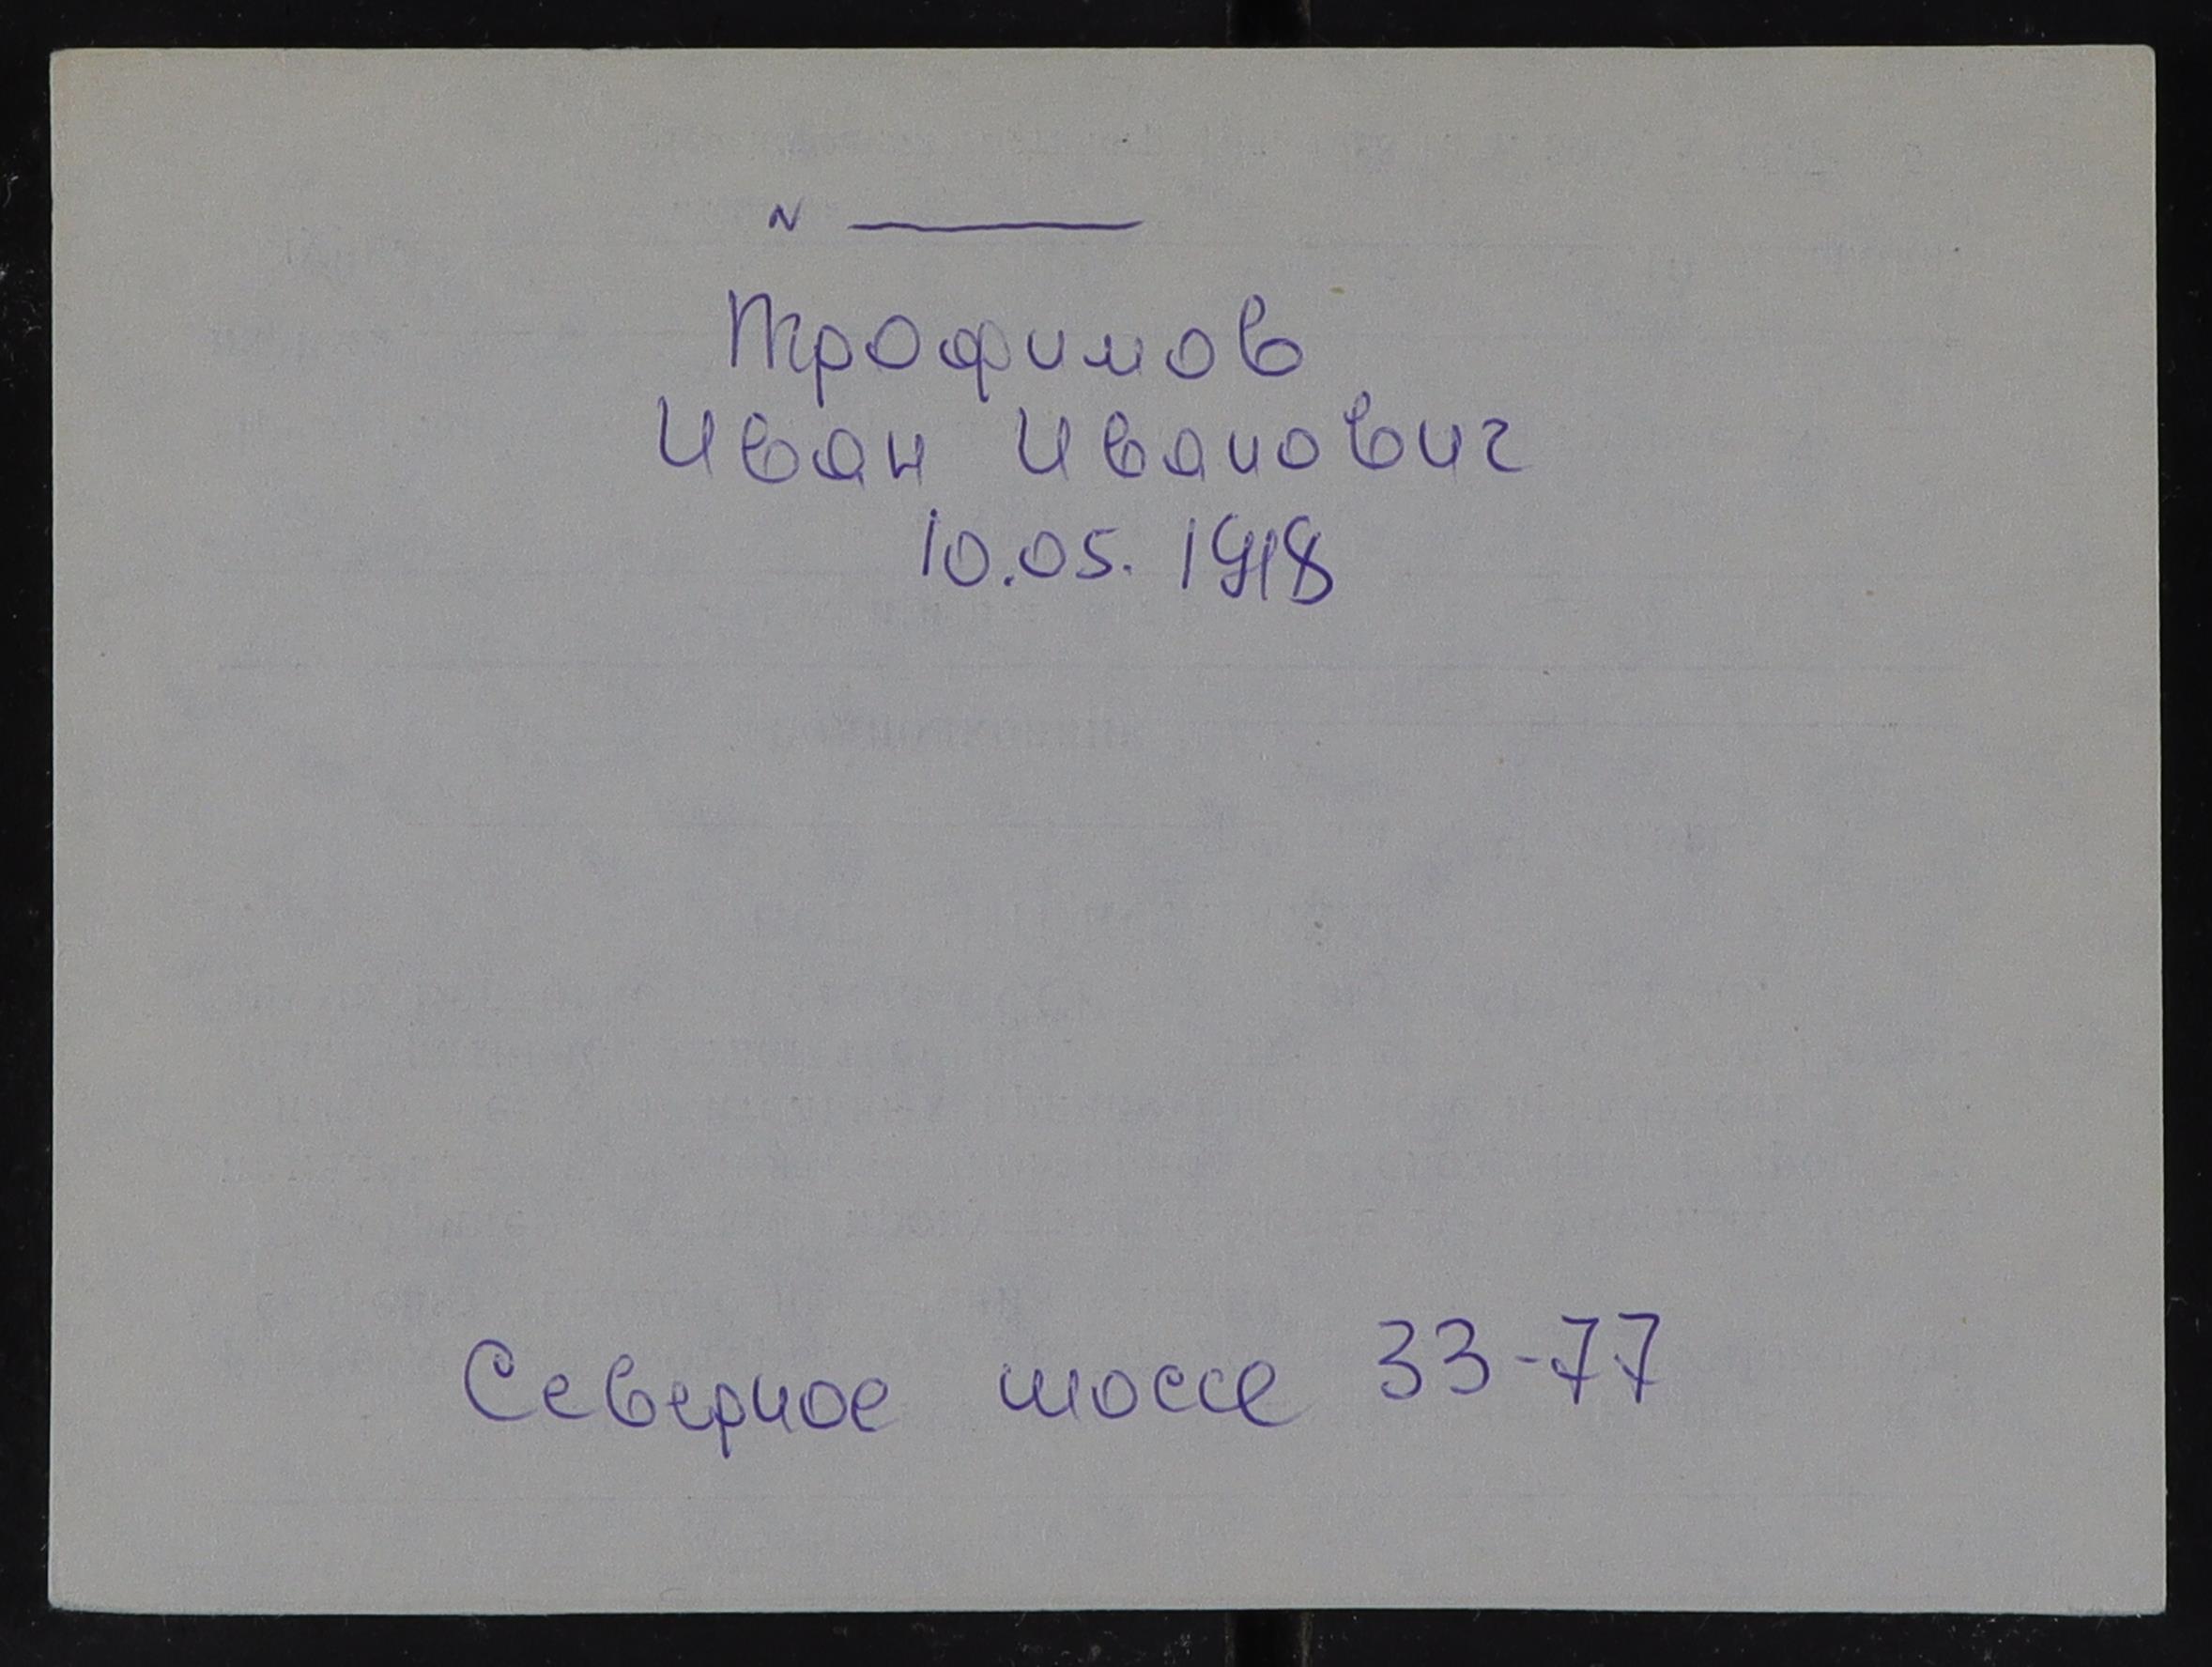 N ______
Трофимов
Иван Иванович
10.05.1918
Северное шоссе 33-77